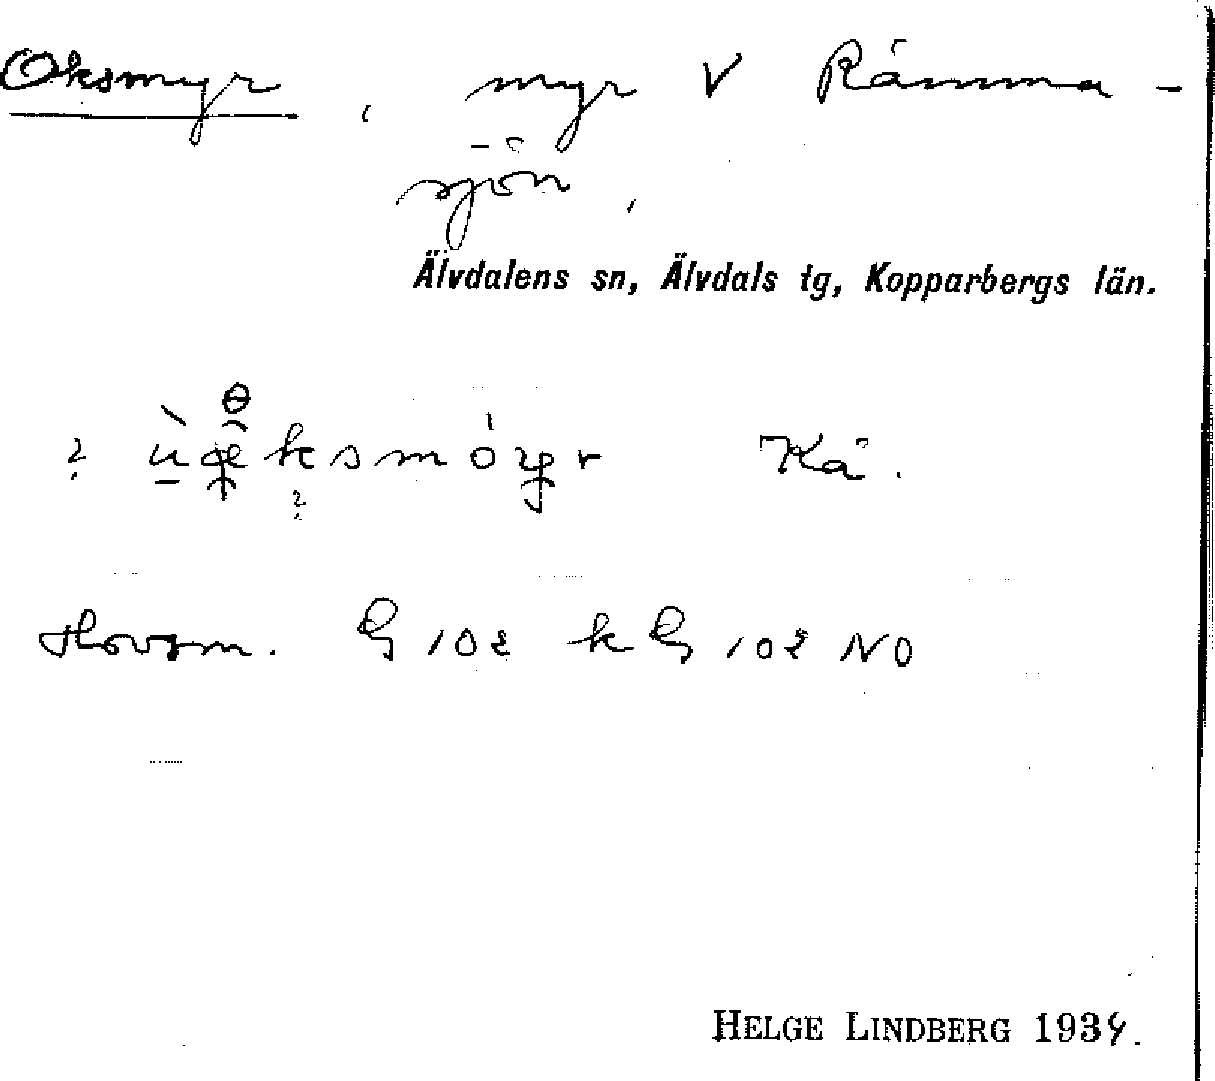 Oksmyr, myr V Råmma-
sjön,
Älvdalens sn, Älvdals tg, Kopparbergs län.
Kå.
Hovsm. G 102 k G 102 NO
HELGE LINDBERG 1934.